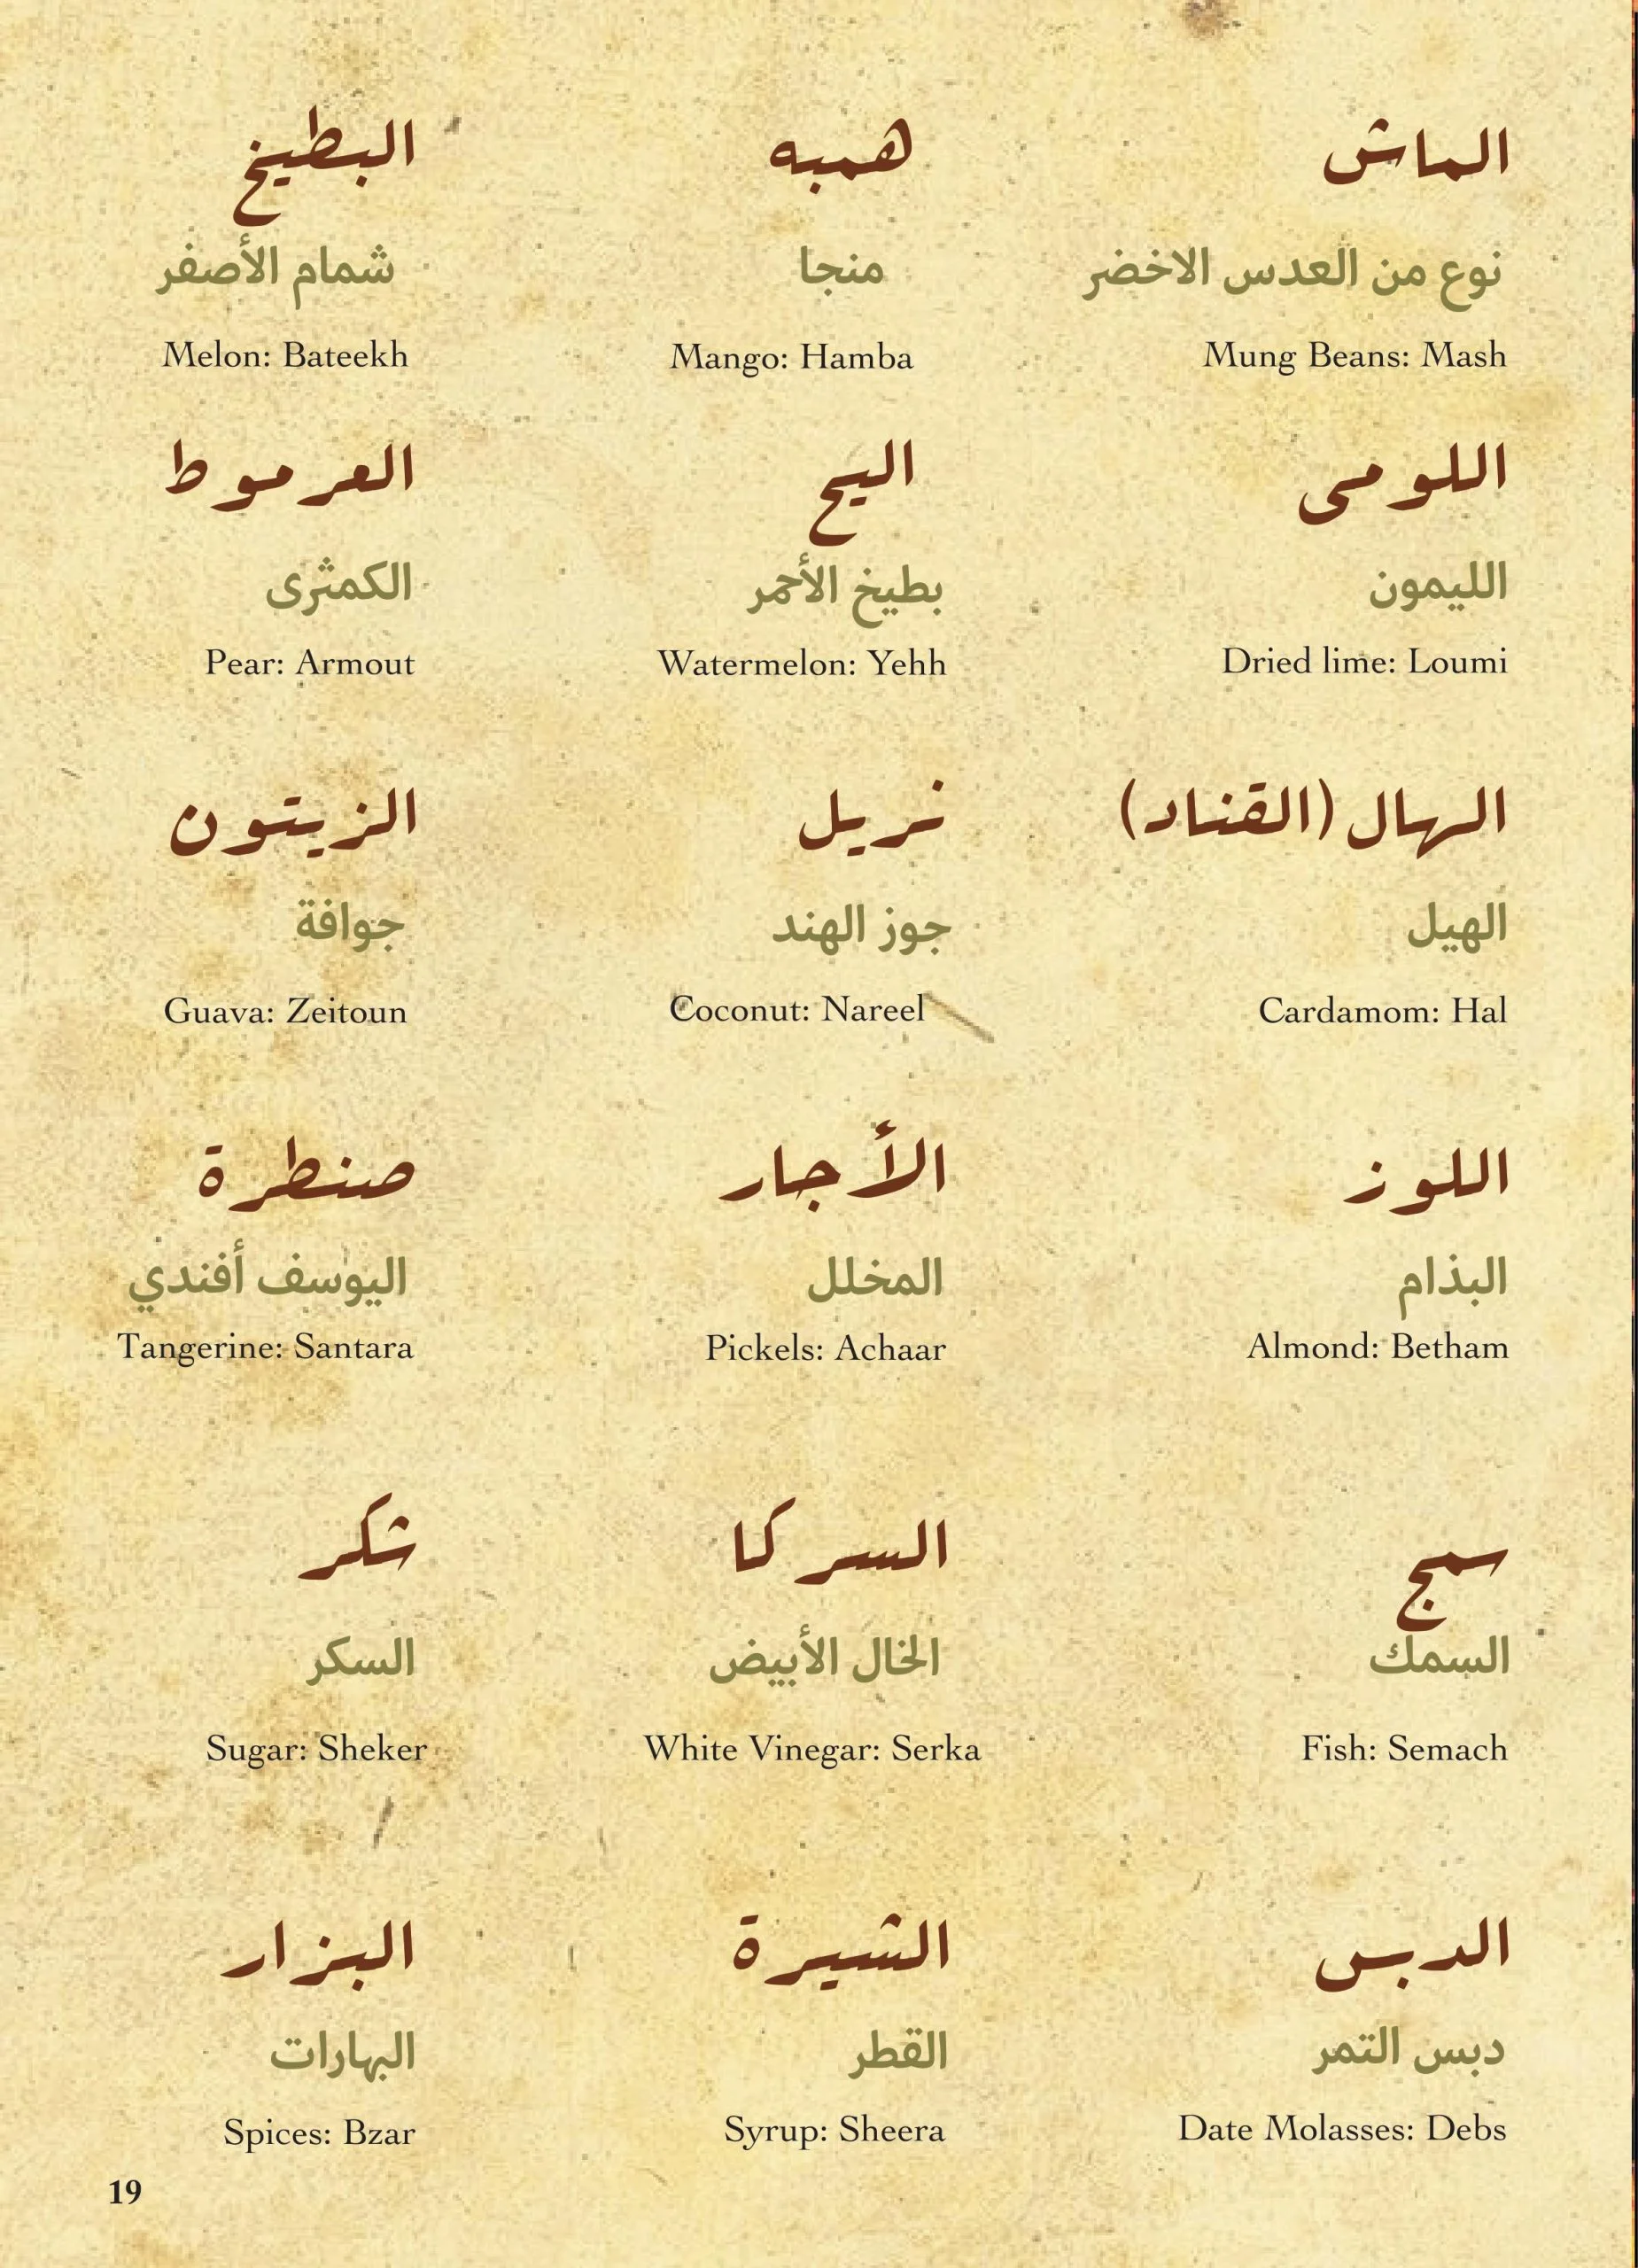 الماش
نوع من العدس الاخضر
Mung Beans: Mash
همبه
منجا
Mango: Hamba
البطيخ
شمام الأصفر
Melon: Bateekh
اللومى
الليمون
Dried lime: Loumi
اليح
بطيخ الأحمر
Watermelon: Yehh
العرموط
الكمثرى
Pear: Armout
الهال (القناد)
الهيل
Cardamom: Hal
نريل
جوز الهند
Coconut: Nareel
الزيتون
جوافة
Guava: Zeitoun
اللوز
البذام
Almond: Betham
الأجار
المخلل
Pickels: Achaar
صنطرة
اليوسف أفندي
Tangerine: Santara
سمج
السمك
Fish: Semach
السركا
الخال الأبيض
White Vinegar: Serka
شكر
السكر
Sugar: Sheker
الدبس
دبس التمر
Date Molasses: Debs
الشيرة
القطر
Syrup: Sheera
البزار
البهارات
Spices: Bzar
19